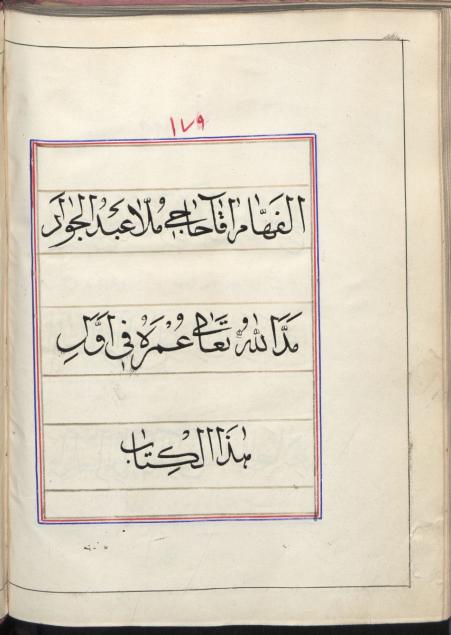 ١٧٩
الفَهَّام اقآحاجي مُلّا عَبدُ الجَواد
مَدَّ اللهُ تَعَالى عُمرَهُ في اَوَّلِ
هٰذَا الكِتاب